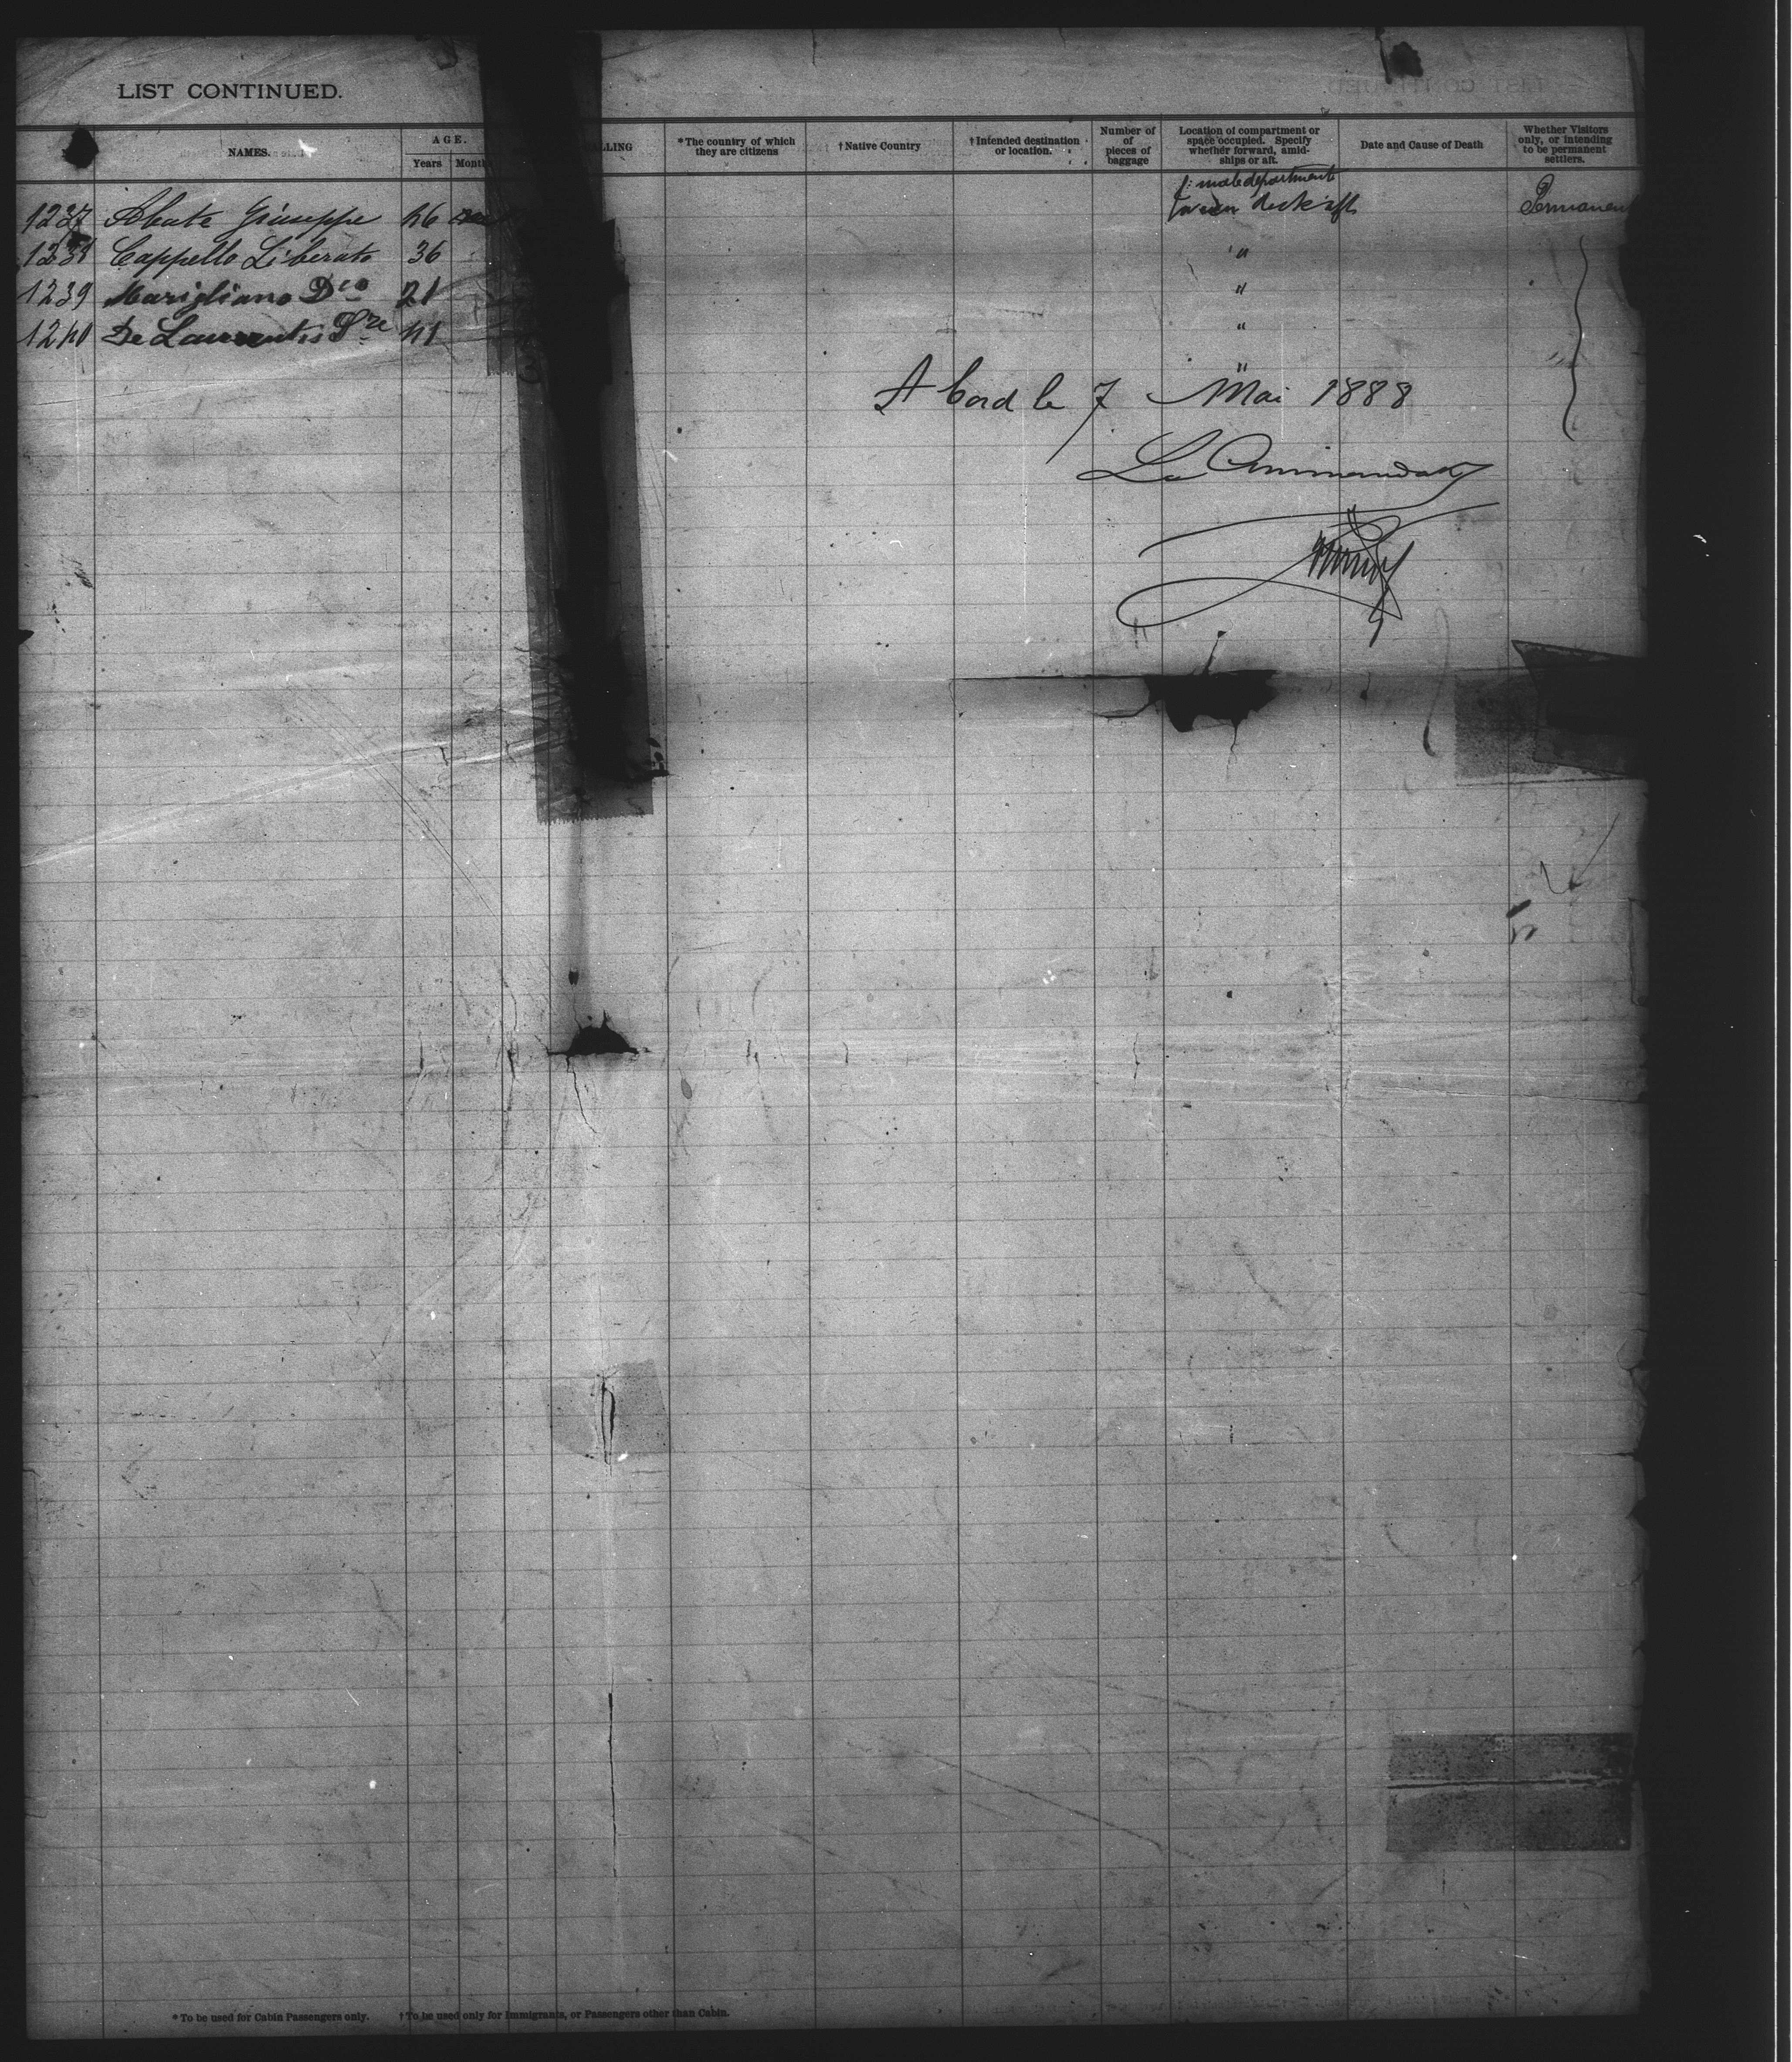 LIST CONTINUED.
NAMES.
AGE.
Years
Month
ALLING
*The country of which they are citizens
†Native Country
†Intended destination or location.
Number of pieces of baggage
Location of compartment or space occupied. Specify whether forward, amidships or aft.
Date and Cause of Death
Whether Visitors only, or intending to be permanent settlers.
1237 Abate Giuseppe 46 male department deck aft Permanent
1238 Cappello Liberato 36 "
1239 Marigliano Dco 21 "
1240 De Laurentis 41 "
"
A bord le 7 Mai 1888
Le Commandant
*To be used for Cabin Passengers only. †To be used only for Immigrants, or Passengers other than Cabin.